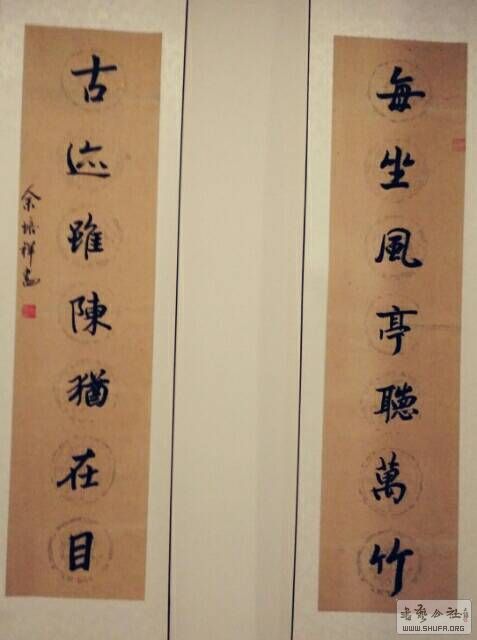 每坐風亭聽萬竹
古迹雖陳猶在目
余培祥書
書藝公社
WWW.SHUFA.ORG